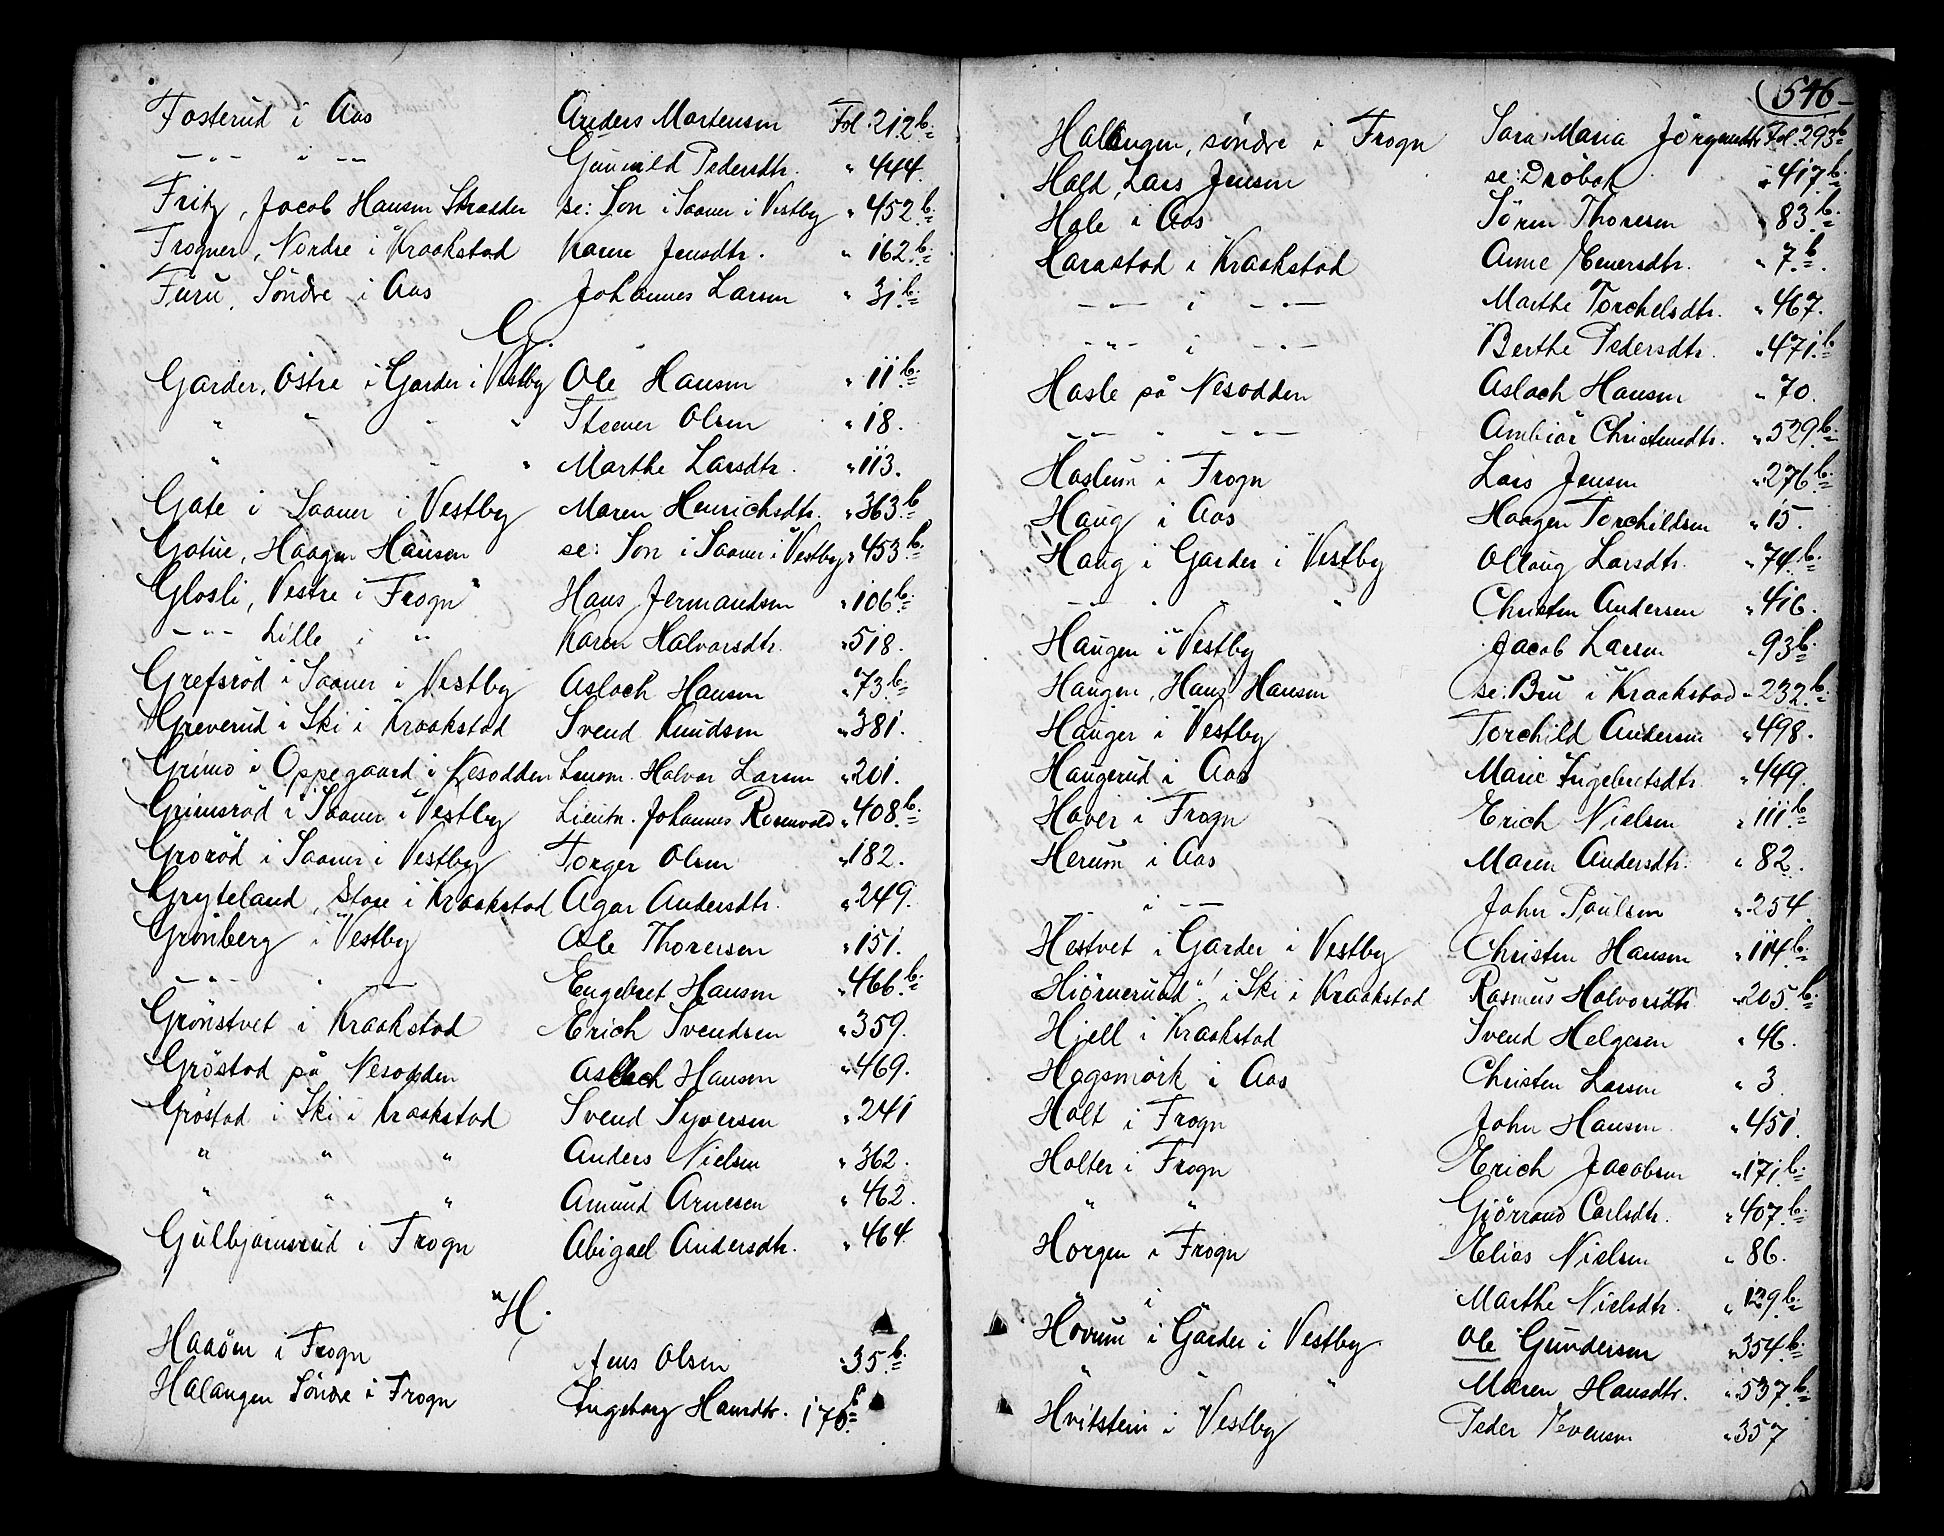 Fosterud i Aas Anders Mortensen Fol. 212 b.
— " — i — — Gunild Pedersdtr. " 444.
Fritz, Jacob Hansen Skrædder se: Son i Saaner i Vestby " 452 b.
Frogner, Nordre i Kraakstad Karen Jensdtr. " 162 b.
Furu, Söndre i Aas Johannes Larsen " 31 b.
G.
Garder, Östre i Garder i Vestby Ole Hansen " 11 b.
" " " " Steener Olsen " 18.
" " " Marthe Larsdtr. " 113.
Gate i Saaner i Vestby Maren Henrichsdtr. " 363 b
Gatue, Haagen Hansen se: Son i Saaner i Vestby " 453 b.
Glosli, Vestre i Frogn Hans Jermandsen " 106 b.
— " — Lille i " Karen Halvorsdtr. " 518.
Grefsröd i Saaner i Vestby Aslach Hansen " 73 b.
Greverud i Ski i Kraakstad Svend Knudsen " 381.
Grimo i Oppegaard i Nesodden Lensm. Halvor Larsen " 201.
Grimsröd i Saaner i Vestby Lieutn. Johannes Rosenvold " 408 b.
Groröd i Saaner i Vestby Torger Olsen " 182.
Gryteland, Store i Kraakstad Agar Andersdtr. " 249.
Grönberg i Vestby Ole Thoresen " 151.
— " — " — Engebret Hansen " 466 b.
Grönstvet i Kraakstad Erich Svendsen " 359.
Gröstad på Nesodden Aslach Hansen " 469.
Gröstad i Ski i Kraakstad Svend Syversen " 241
" " " Anders Nielsen " 362.
" " " Amund Arnesen " 462.
Gulbjörnsrud i Frogn Abigael Andersdtr. " 464
H.
Haaöen i Frogn Jens Olsen " 35 b.
Halangen Söndre i Frogn Ingeborg Hansdtr. 176 b
546
Halangen, söndre i Frogn Sara Maria Jörgensdtr Fol. 293 b
Hald, Lars Jensen se: Dröbak " 417 b.
Hole i Aas Sören Thoresen " 83 b.
Harastad i Kraakstad Anne Enersdtr. " 7 b.
— " — i — " — Marthe Torchelsdtr. " 467.
— " — i — " — Berthe Pedersdtr. " 471 b
Hasle på Nesodden Aslach Hansen " 70.
— — " — " — Ambiör Christensdtr. " 529 b.
Haslum i Frogn Lars Jensen " 276 b.
Haug i Aas Haagen Torchildsen " 15.
Haug i Garder i Vestby Ollaug Larsdtr. " 74 b.
— — " " " Christen Andersen " 416.
Haugen i Vestby Jacob Larsen " 93 b
Haugen, Hans Hansen se: Bru i Kraakstad " 232 b.
Hauger i Vestby Torchild Andersen " 498.
Haugerud i Aas Marie Ingebretsdtr. " 449.
Haver i Frogn Erich Nielsen " 111 b
Herum i Aas Maren Andersdtr. " 82.
— — i — — John Paulsen " 254
Hestvet i Garder i Vestby Christen Hansen " 114 b.
Hiörnerund"! i Ski i Kraakstad Rasmus Halvorsdtr " 205 b.
Hjell i Kraakstad Svend Helgesen " 46.
Hogsmörk i Aas Christen Larsen " 3
Holt i Frogn John Hansen " 451.
Holter i Frogn Erich Jacobsen " 171 b.
" " Giörrand Carlsdtr. " 407 b.
Horgen i Frogn Elias Nielsen " 86.
" i " Marthe Nielsdtr. " 129 b.
Hovum i Garder i Vestby Ole Gundersen " 354 b.
" " Maren Hansdtr. " 537 b.
Hvitstein i Vestby Peder Evensen " 357